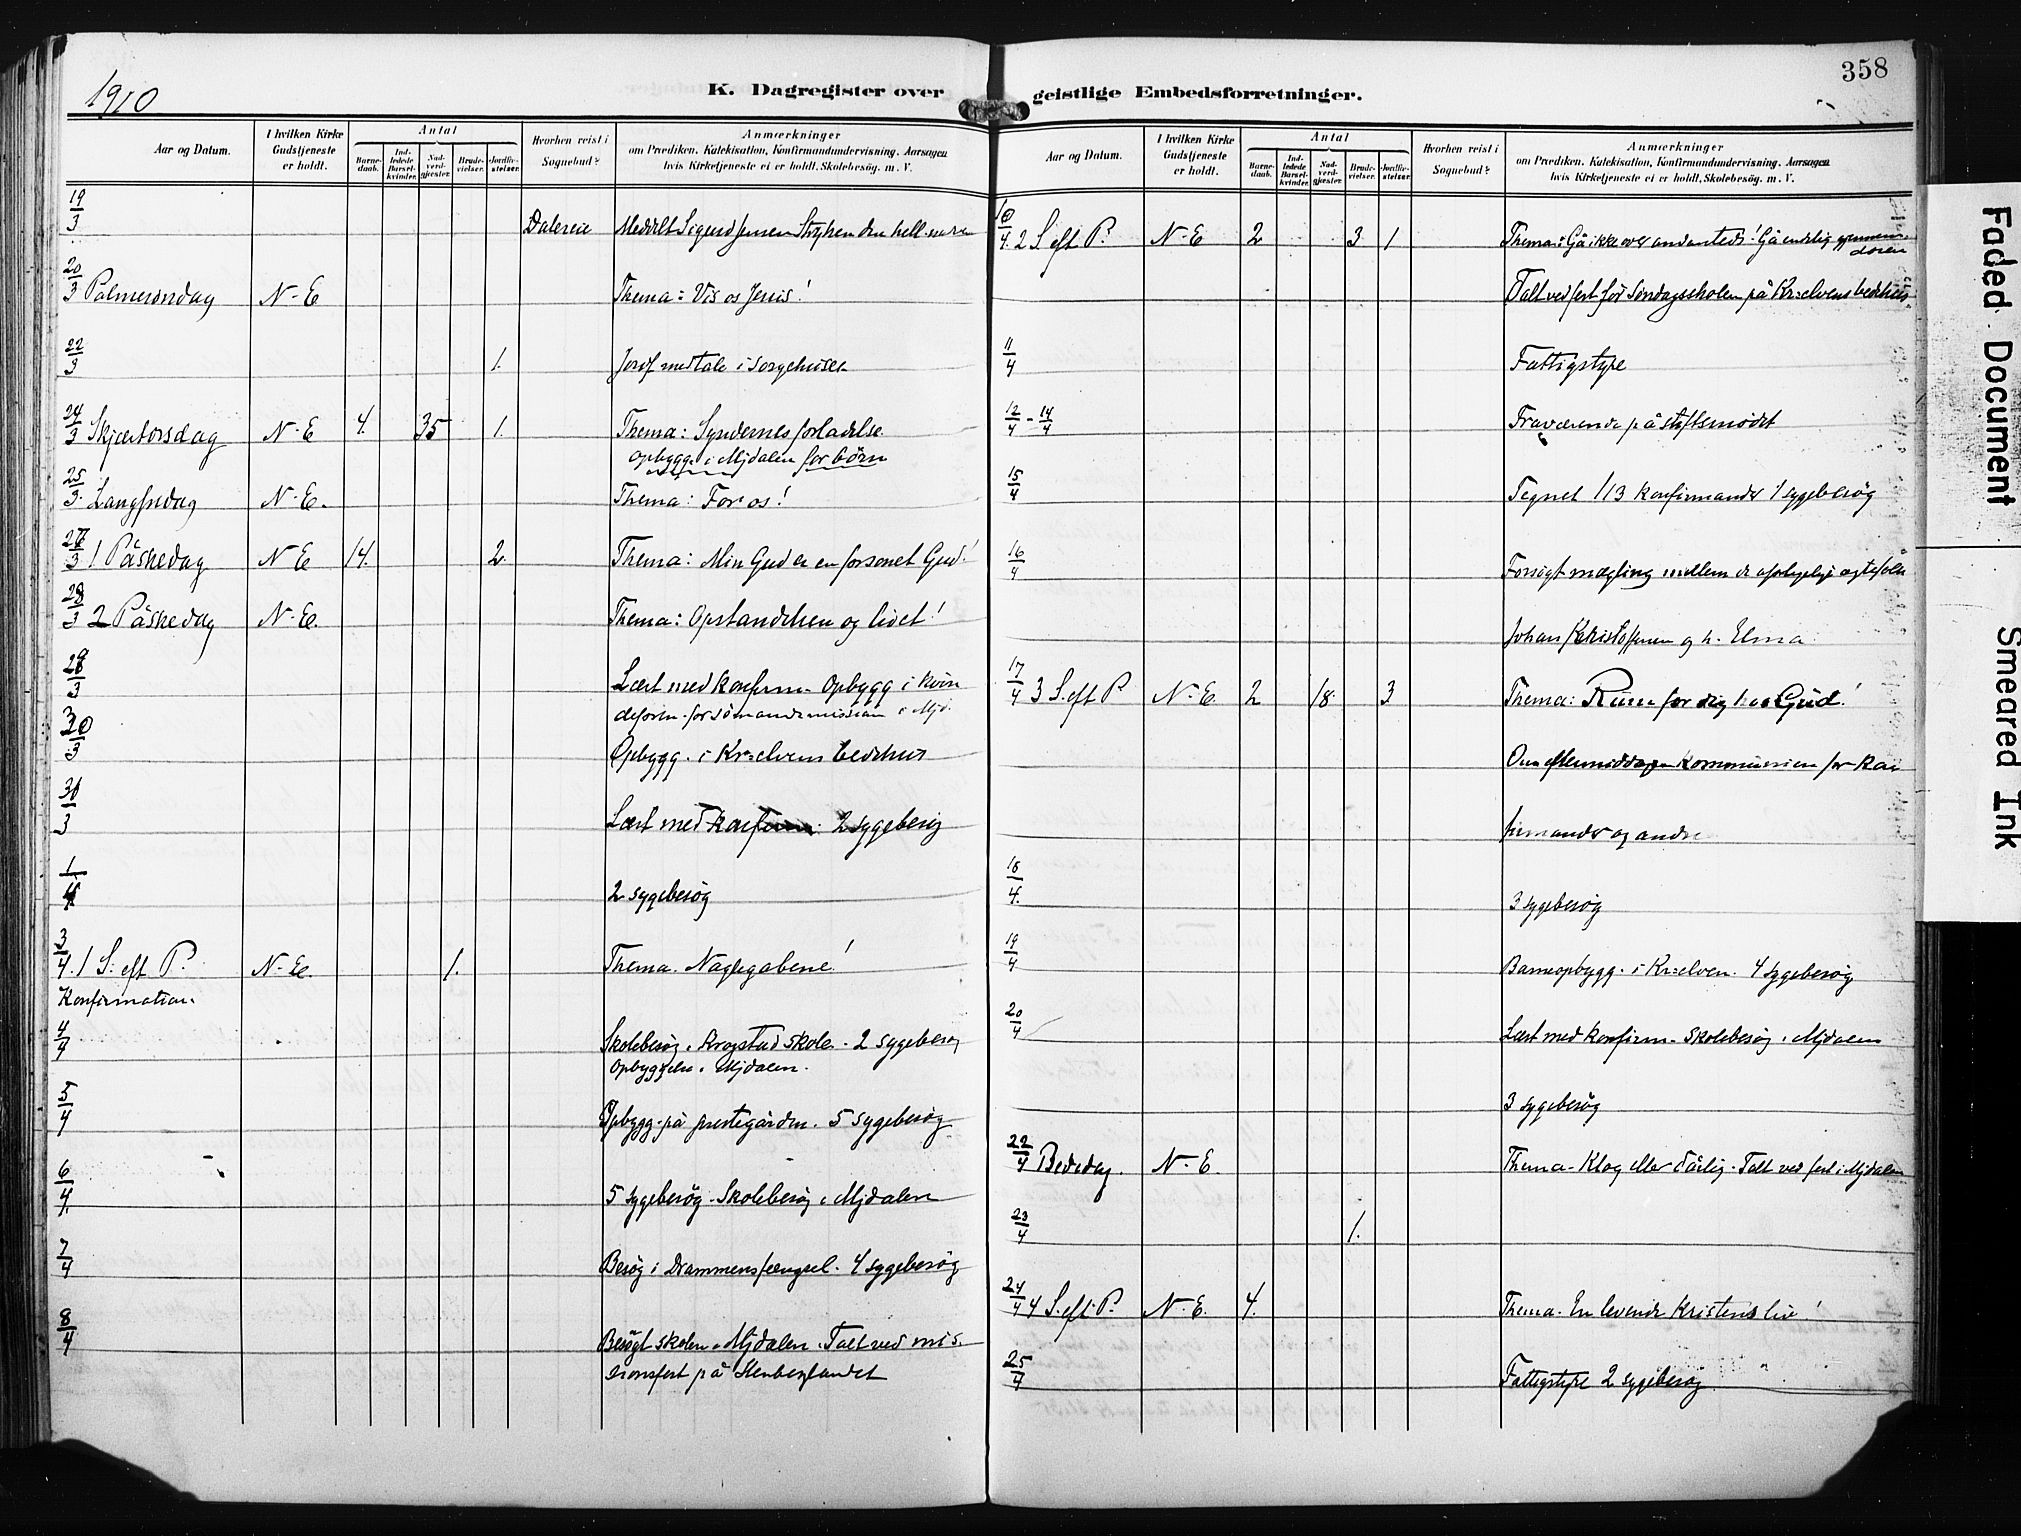 1910
K. Dagregister over geistlige Embedsforretninger.
358
Aar og Datum. I hvilken Kirke Gudstjeneste er holdt. Antal Barne-daab. Ind-ledede Barsel-kvinder. Nad-verd-gjæster. Brude-vielser. Jordfæ-stelser. Hvorhen reist i Sognebud? Anmærkninger om Prædiken, Katekisation, Konfirmandundervisning, Aarsagen hvis Kirketjeneste ei er holdt, Skolebesøg. m. V.
19/3 Dalereie Meddelt Sigurd Jensen den hell.
20/3 Palmesøndag N-E Thema: Vis os Jesus!
22/3 1. Jordf med tale i sorgehuset
24/3 Skjærtorsdag N-E 4. 35 1. Thema: Syndernes forladelse
opbygg. i Mjdalen for børn
25/3 Langfredag N-E. Thema: For os!
27/3 1 Påskedag N-E 14. 2. Thema: Min Gud er en forsonet Gud!
28/3 2 Påskedag N-E. Thema: Opstandelsen og livet!
29/3 Læst med konfirm. Opbygg i kvin
deforen. for sømandsmission i Mjd.
30/3 Opbygg. i Kr:elvens bedehus
31/3 Læst med konfirm. 2 sygebesøg
1/4 2 sygebesøg
3/4. 1 S. eft P. N-E. 1. Thema. Naglegabene!
Konfirmation.
4/4 Skolebesøg i Krogstad skole. 2 sygebesøg
Opbyggelse i Mjdalen.
5/4 Opbygg. på prestegården. 5 sygebesøg
6/4. 5 sygebesøg. Skolebesøg i Mjdalen
7/4 Besøg i Drammens fængsel. 4 sygebesøg
8/4 Besøgt skolen i Mjdalen. Talt ved mis-
sionsfest på Stenbergland­et
Aar og Datum. I hvilken Kirke Gudstjeneste er holdt. Antal Barne-daab. Ind-ledede Barsel-kvinder. Nad-verd-gjæster. Brude-vielser. Jordfæ-stelser. Hvorhen reist i Sognebud? Anmærkninger om Prædiken, Katekisation, Konfirmandundervisning, Aarsagen hvis Kirketjeneste ei er holdt, Skolebesøg. m. V.
10/4. 2 S. eft P. N-E 2 3 1 Thema: Gå ikke over andensteds! Gå endelig gjennem
døren
Talt ved fest for søndagsskolen på Kr:elvens bedehus
11/4 Fattigstyre
12/4 - 14/4 Fraværende på stiftsmødet
15/4 Tegnet 113 konfirmander 1 sygebesøg
16/4 Forsøgt mægling mellem de ægtefolk
Johan Kristoffersen og h. Elma
17/4 3 S. eft P N-E. 2 18 3 Thema: Rum for dig hos Gud!
Om eftermiddagen kommunion for kon
firmander og andre
18/4. 3 sygebesøg
19/4 Barneopbygg. i Kr:elven. 4 sygebesøg
20/4 Læst med konfirm. Skolebesøg i Mjdalen
3 sygebesøg
22/4 Bededag. N-E. Thema- Klog eller dårlig. Talt ved fest i Mjdalen
23/4 1.
24/4 4 S. eft. P. N-E. 4. Thema. En levende kristens liv!
25/4 Fattigstyre 2 sygebesøg
Faded Document
Smeared Ink